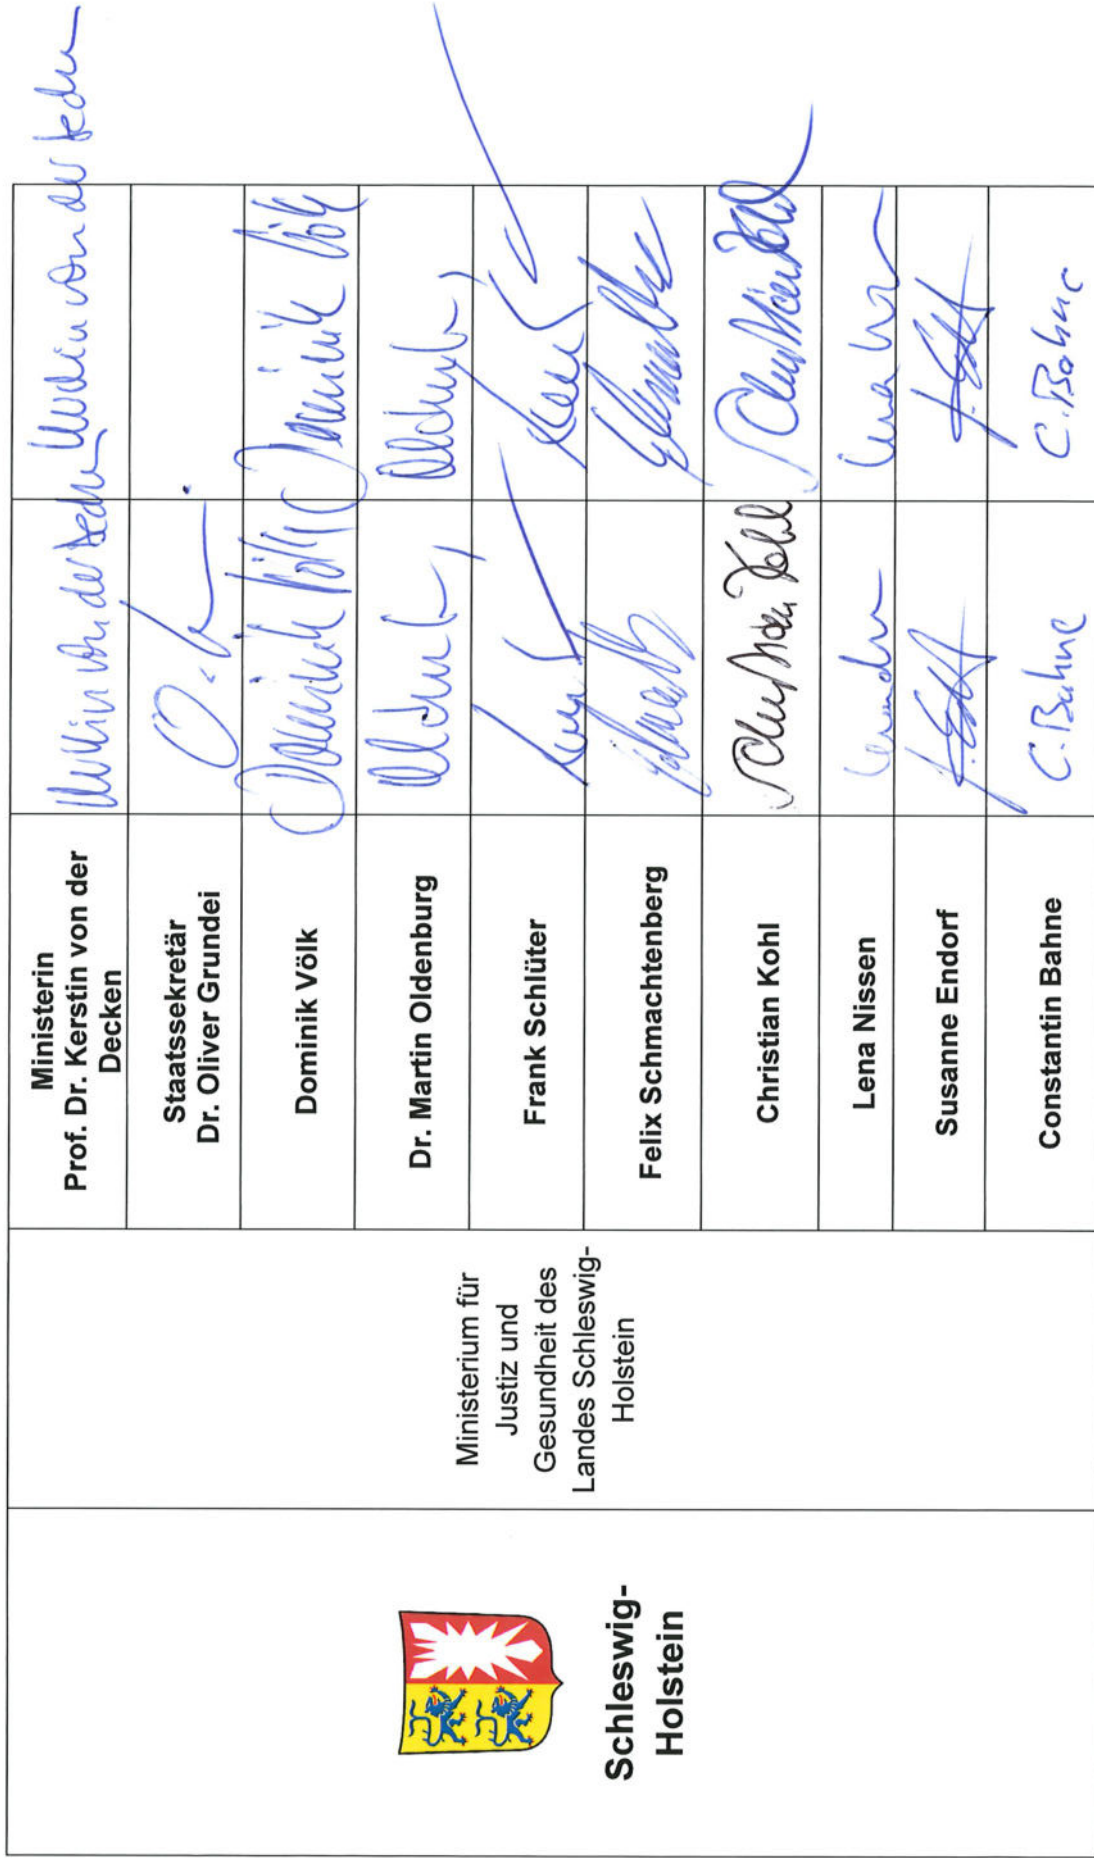 Schleswig-
Holstein
Ministerium für
Justiz und
Gesundheit des
Landes Schleswig-
Holstein
Ministerin
Prof. Dr. Kerstin von der
Decken
Staatssekretär
Dr. Oliver Grundei
Dominik Völk
Dominik Völk
Dominik Völk
Dr. Martin Oldenburg
Frank Schlüter
Felix Schmachtenberg
Christian Kohl
Lena Nissen
Susanne Endorf
Constantin Bahne
C. Bahne
C. Bahne